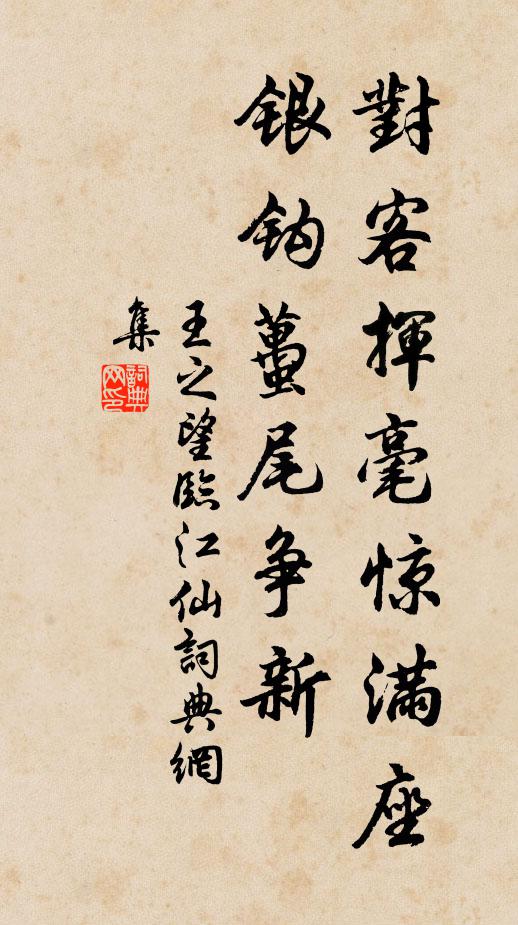 對客揮毫惊滿座
银鈎薑尾争新
王之望臨江仙詞典網
集
詞典
网印